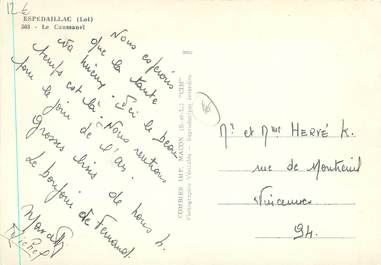 12 €
ESPEDAILLAC (Lot)
503 - Le Caussanel
Nous espérons
que la tante
va mieux. Ici le beau
temps est là. Nous rentrons
pour le jour de l'an.
Grosses bises de nous 4.
Le bonjour de Fernand.
Michel
COMBIER IMP. MACON (S.-et-L.) "CIM"
Photographie Véritable - Reproduction interdite
Mr et Mme HERVÉ K.
rue de Montreuil
Vincennes
94.